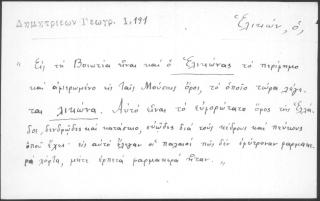 Δημητριέων Γεωγρ. 1,191
Ἑλικών, ὁ,
"Εἰς τὴ Βοιωτία εἶναι καὶ ὁ Ἑλικῶνας τὸ περίφημο
καὶ ἀφιερωμένο εἰς ταῖς Μούσαις ὄρος, τὸ ὁποῖο τώρα λέγε-
ται λικώνα. Αὐτὸ εἶναι τὸ εὐμορώτατο ὄρος τῆς Ἑλλά-
δος, δενδρῶδες καὶ κατάσκιο, εὐῶδες διὰ τοὺς κέδρους καὶ πεύκους
ὁποῦ ἔχει· εἰς αὐτὸ ἔλεγαν οἱ παλαιοὶ πῶς δὲν ἐφύτροναν φαρμακε-
ρὰ χόρτα, μήτε ἑρπετὰ φαρμακερὰ ἦταν."